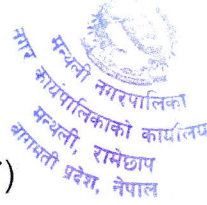 मन्थली नगरपालिका
नगर कार्यपालिकाको कार्यालय
मन्थली, रामेछाप
बागमती प्रदेश, नेपाल
)